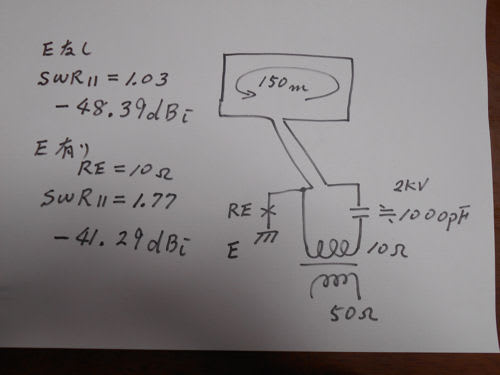 E なし
SWR11 = 1.03
-48.39dBi
E 有り
RE = 10Ω
SWR11 = 1.77
-41.29dBi
150m
2KV
≒1000pF
RE
E
10Ω
50Ω